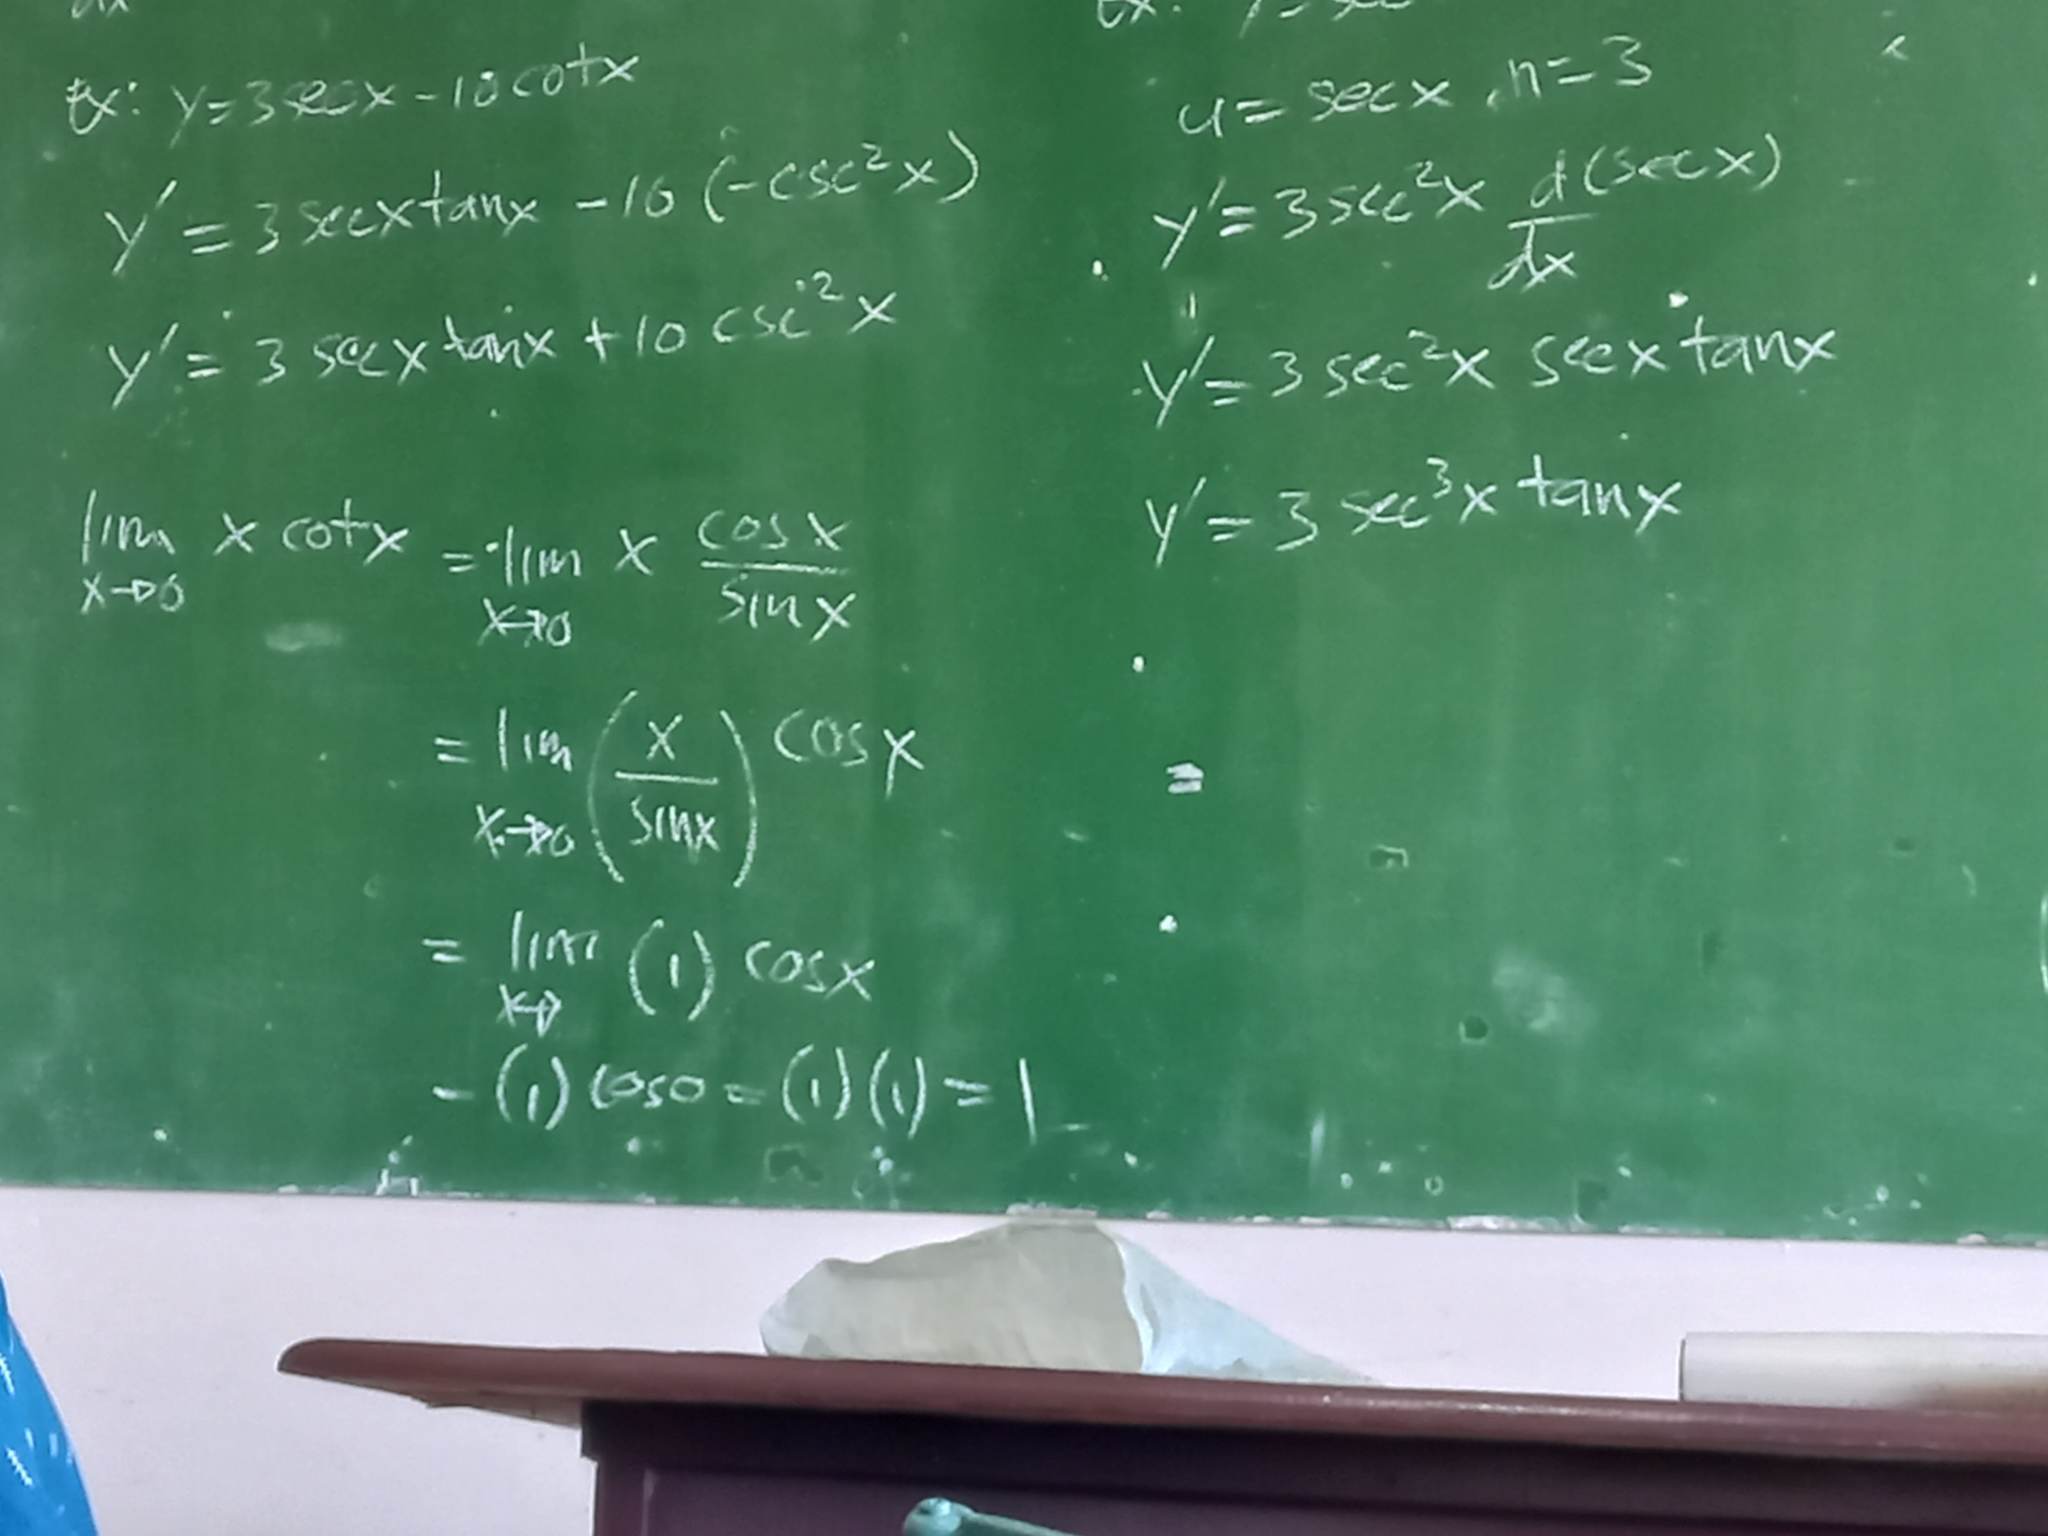 dx
Ex: y=3secx-10cotx
y'=3secxtanx-10(-csc²x)
y'=3secxtanx+10csc²x
lim x→0 x cotx = lim x→0 x cosx/sinx
= lim x→0 (x/sinx) cosx
= lim x→ (1) cosx
- (1) cos0 = (1)(1) = 1
Ex: y=sec
u=secx, n=3
y'=3sec²x d(secx)/dx
y'=3sec²x secxtanx
y'=3sec³x tanx
=